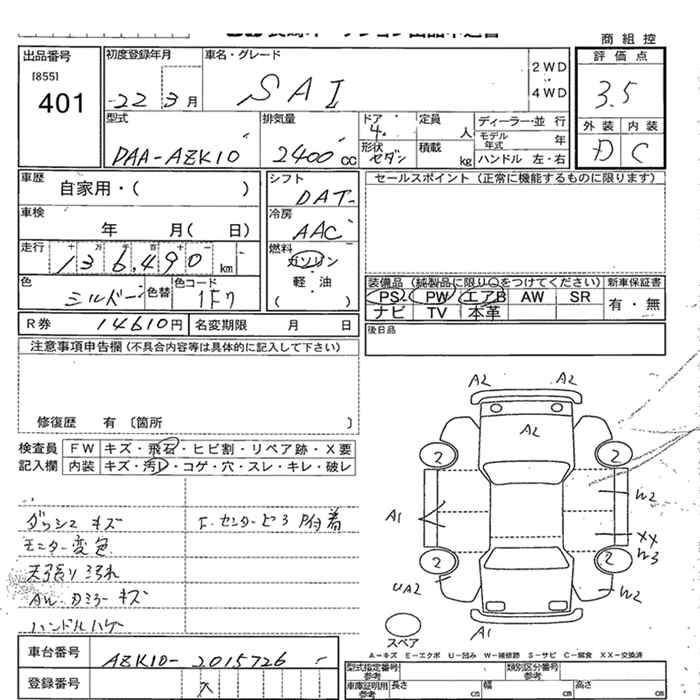 商組控
出品番号
[855]
401
初度登録年月
22 3月
車名・グレード
SAI
2WD
4WD
評価点
3.5
外装 内装
D C
型式
DAA-AZK10
排気量
2400cc
ドア
4.
形状
セダン
定員
人
積載
kg
ディーラー・並行
モデル年式 年
ハンドル 左・右
車歴
自家用・( )
車検
年 月( 日)
走行
十 万 千 百 十 一
136,490 km
色
シルバー
色替
色コード
1F7
シフト
DAT
冷房
AAC
燃料
ガソリン
軽・油
( )
セールスポイント(正常に機能するものに限ります)
装備品(純製品に限り○をつけてください) 新車保証書
PS PW エアB AW SR
ナビ TV 本革
有・無
R券 14610円 名変期限 月 日
後日品
注意事項申告欄(不具合内容等は具体的に記入して下さい)
修復歴 有〔箇所 〕
検査員
記入欄
FW キズ・飛石・ヒビ割・リペア跡・X要
内装 キズ・汚れ・コゲ・穴・スレ・キレ・破レ
ダッシュ キズ
モニター変色
天張り汚れ
AW. Dミラー キズ
ハンドルハゲ
A2 A2
A2
2 2
A1
W2
XX
W3
2 2
UA2
W2
A1
スペア
A-キズ E-エクボ U-凹み W-補修跡 S-サビ C-腐食 XX-交換済
車台番号 AZK10-2015726
登録番号 X
型式指定番号
参考
類別区分番号
参考
車庫証明用
参考
長さ cm 幅 cm 高さ cm